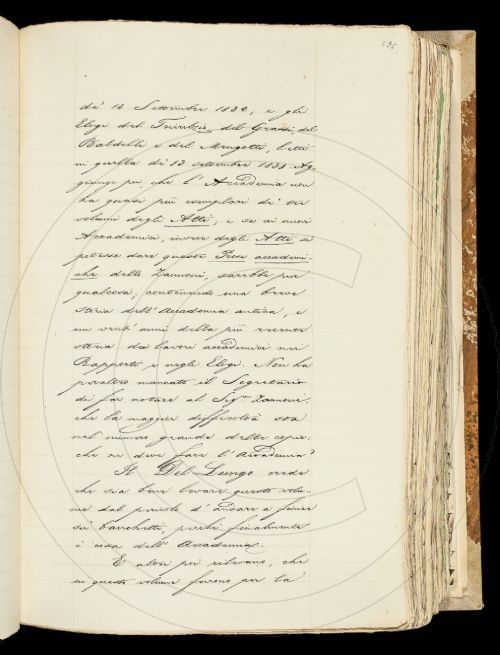 di 14 Settembre 1830, e gli
Elogi del Tiraboschi, del Grassi, del
Baldelli e del Mengotti, letti
in quella di 13 settembre 1831. Ag-
giunge poi, che l'Accademia non
ha quasi più esemplari di tre
volumi degli Atti, e se ai nuovi
Accademici, invece degli Atti si
potesse dare queste Prose accademi-
che dello Zannoni, sarebbe pur
qualcosa, contenendo una breve
storia dell'Accademia antica, e
un vent'anni della più recente
storia dei lavori accademici nei
Rapporti e negli Elogi. Non ha
peraltro mancato il Segretario
di far notare al Sigr. Zannoni,
che la maggior difficoltà sta
nel numero grande delle copie:
che ne deve fare l'Accademia?
Il Del-Lungo crede
che sia bene levare questo volu-
me dal pericolo d'andare a finire
sui banchetti, poichè finalmente
è cosa dell'Accademia.
E altri poi rilevano, che
in questo volume furono per la